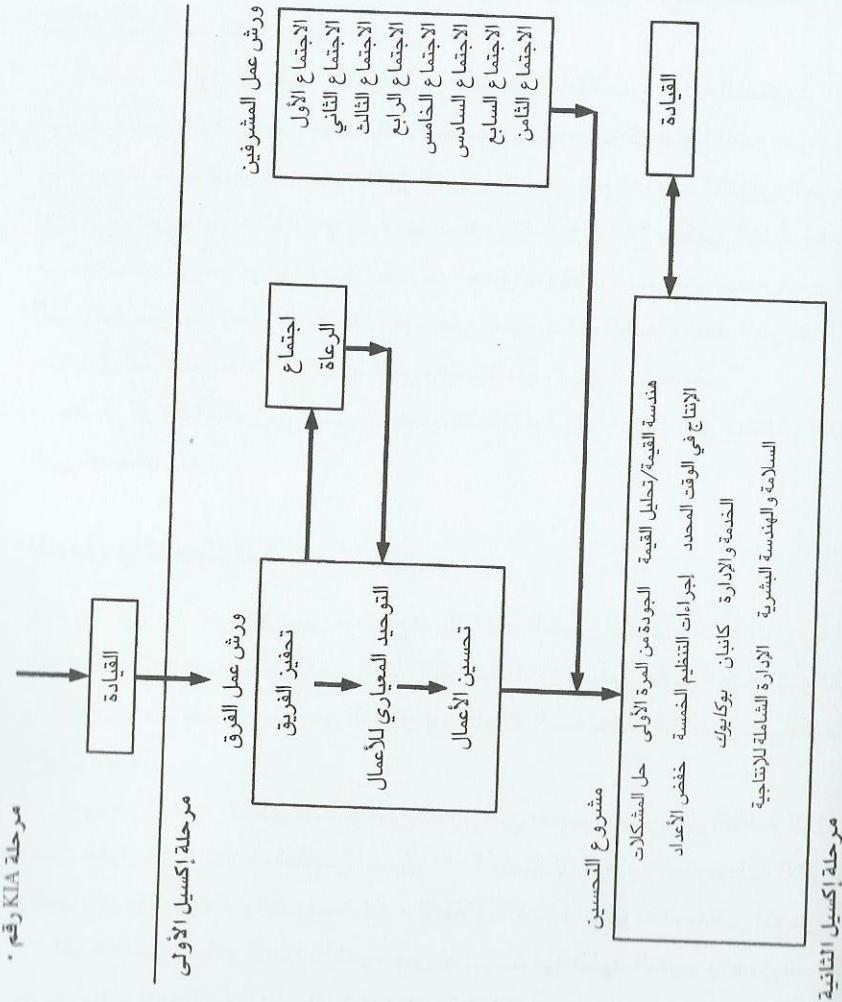 مرحلة KIA رقم ٠
القيادة
مرحلة إكسيل الأولى
ورش عمل الفرق
تحفيز الفريق
التوحيد المعياري للأعمال
تحسين الأعمال
اجتماع
الرعاة
ورش عمل المشرفين
الاجتماع الأول
الاجتماع الثاني
الاجتماع الثالث
الاجتماع الرابع
الاجتماع الخامس
الاجتماع السادس
الاجتماع السابع
الاجتماع الثامن
مشروع التحسين
حل المشكلات الجودة من المرة الأولى هندسة القيمة/تحليل القيمة
خفض الأعداد إجراءات التنظيم الخمسة الإنتاج في الوقت المحدد
الخدمة والإدارة كانبان بوكايوك
السلامة والهندسة البشرية الإدارة الشاملة للإنتاجية
القيادة
مرحلة إكسيل الثانية